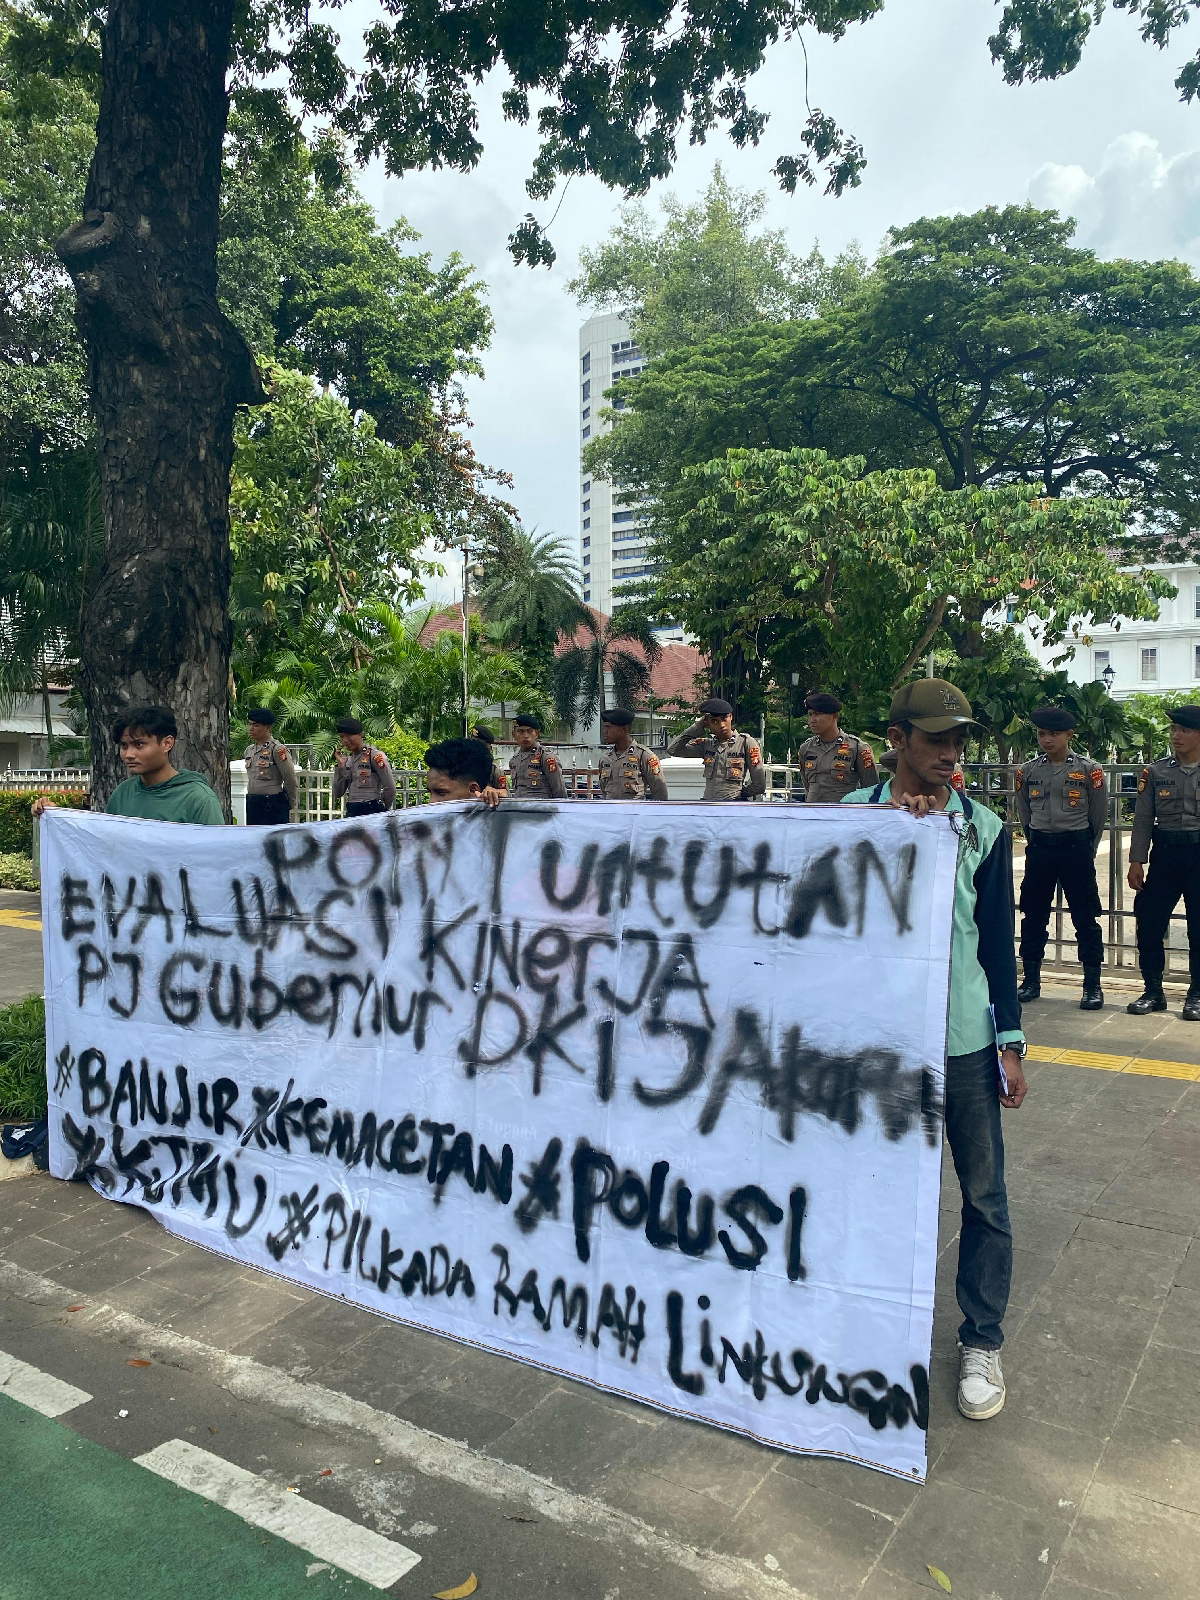 POIN TUntUtAN
EVALUASI KINerJA
PJ GUbernur DKI JAkarta
#BANJIR #KEMACETAN #POLUSI
#KJMU #PILKADA RAMAH LiNKUNGN
POLISI